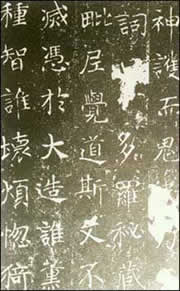 神而鬼
詞多羅秘藏
毗尼覺道斯文不
滅憑於大造誰熏
種智誰壞煩惱猗